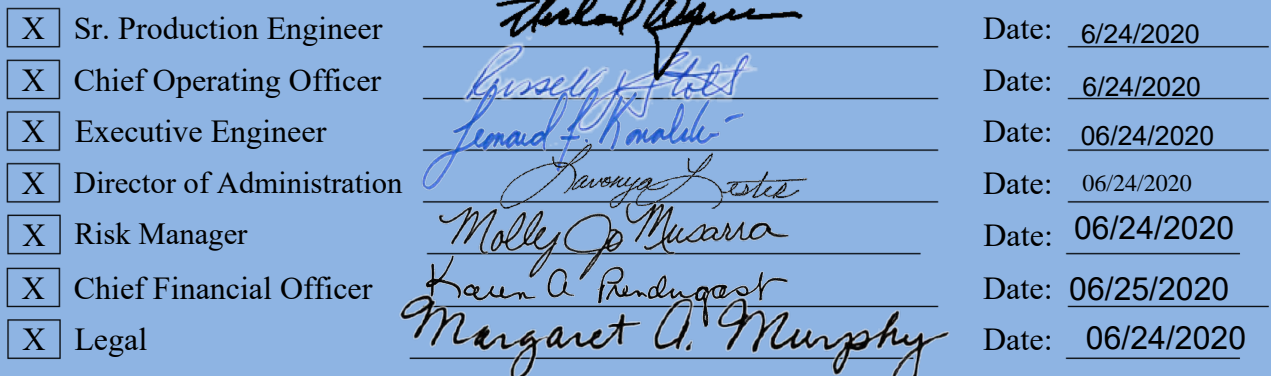 X Sr. Production Engineer Date: 6/24/2020
X Chief Operating Officer Russell Date: 6/24/2020
X Executive Engineer Leonard F. Date: 06/24/2020
X Director of Administration Lavonya Lester Date: 06/24/2020
X Risk Manager Molly Jo Musarra Date: 06/24/2020
X Chief Financial Officer Karen A Prendergast Date: 06/25/2020
X Legal Margaret A. Murphy Date: 06/24/2020